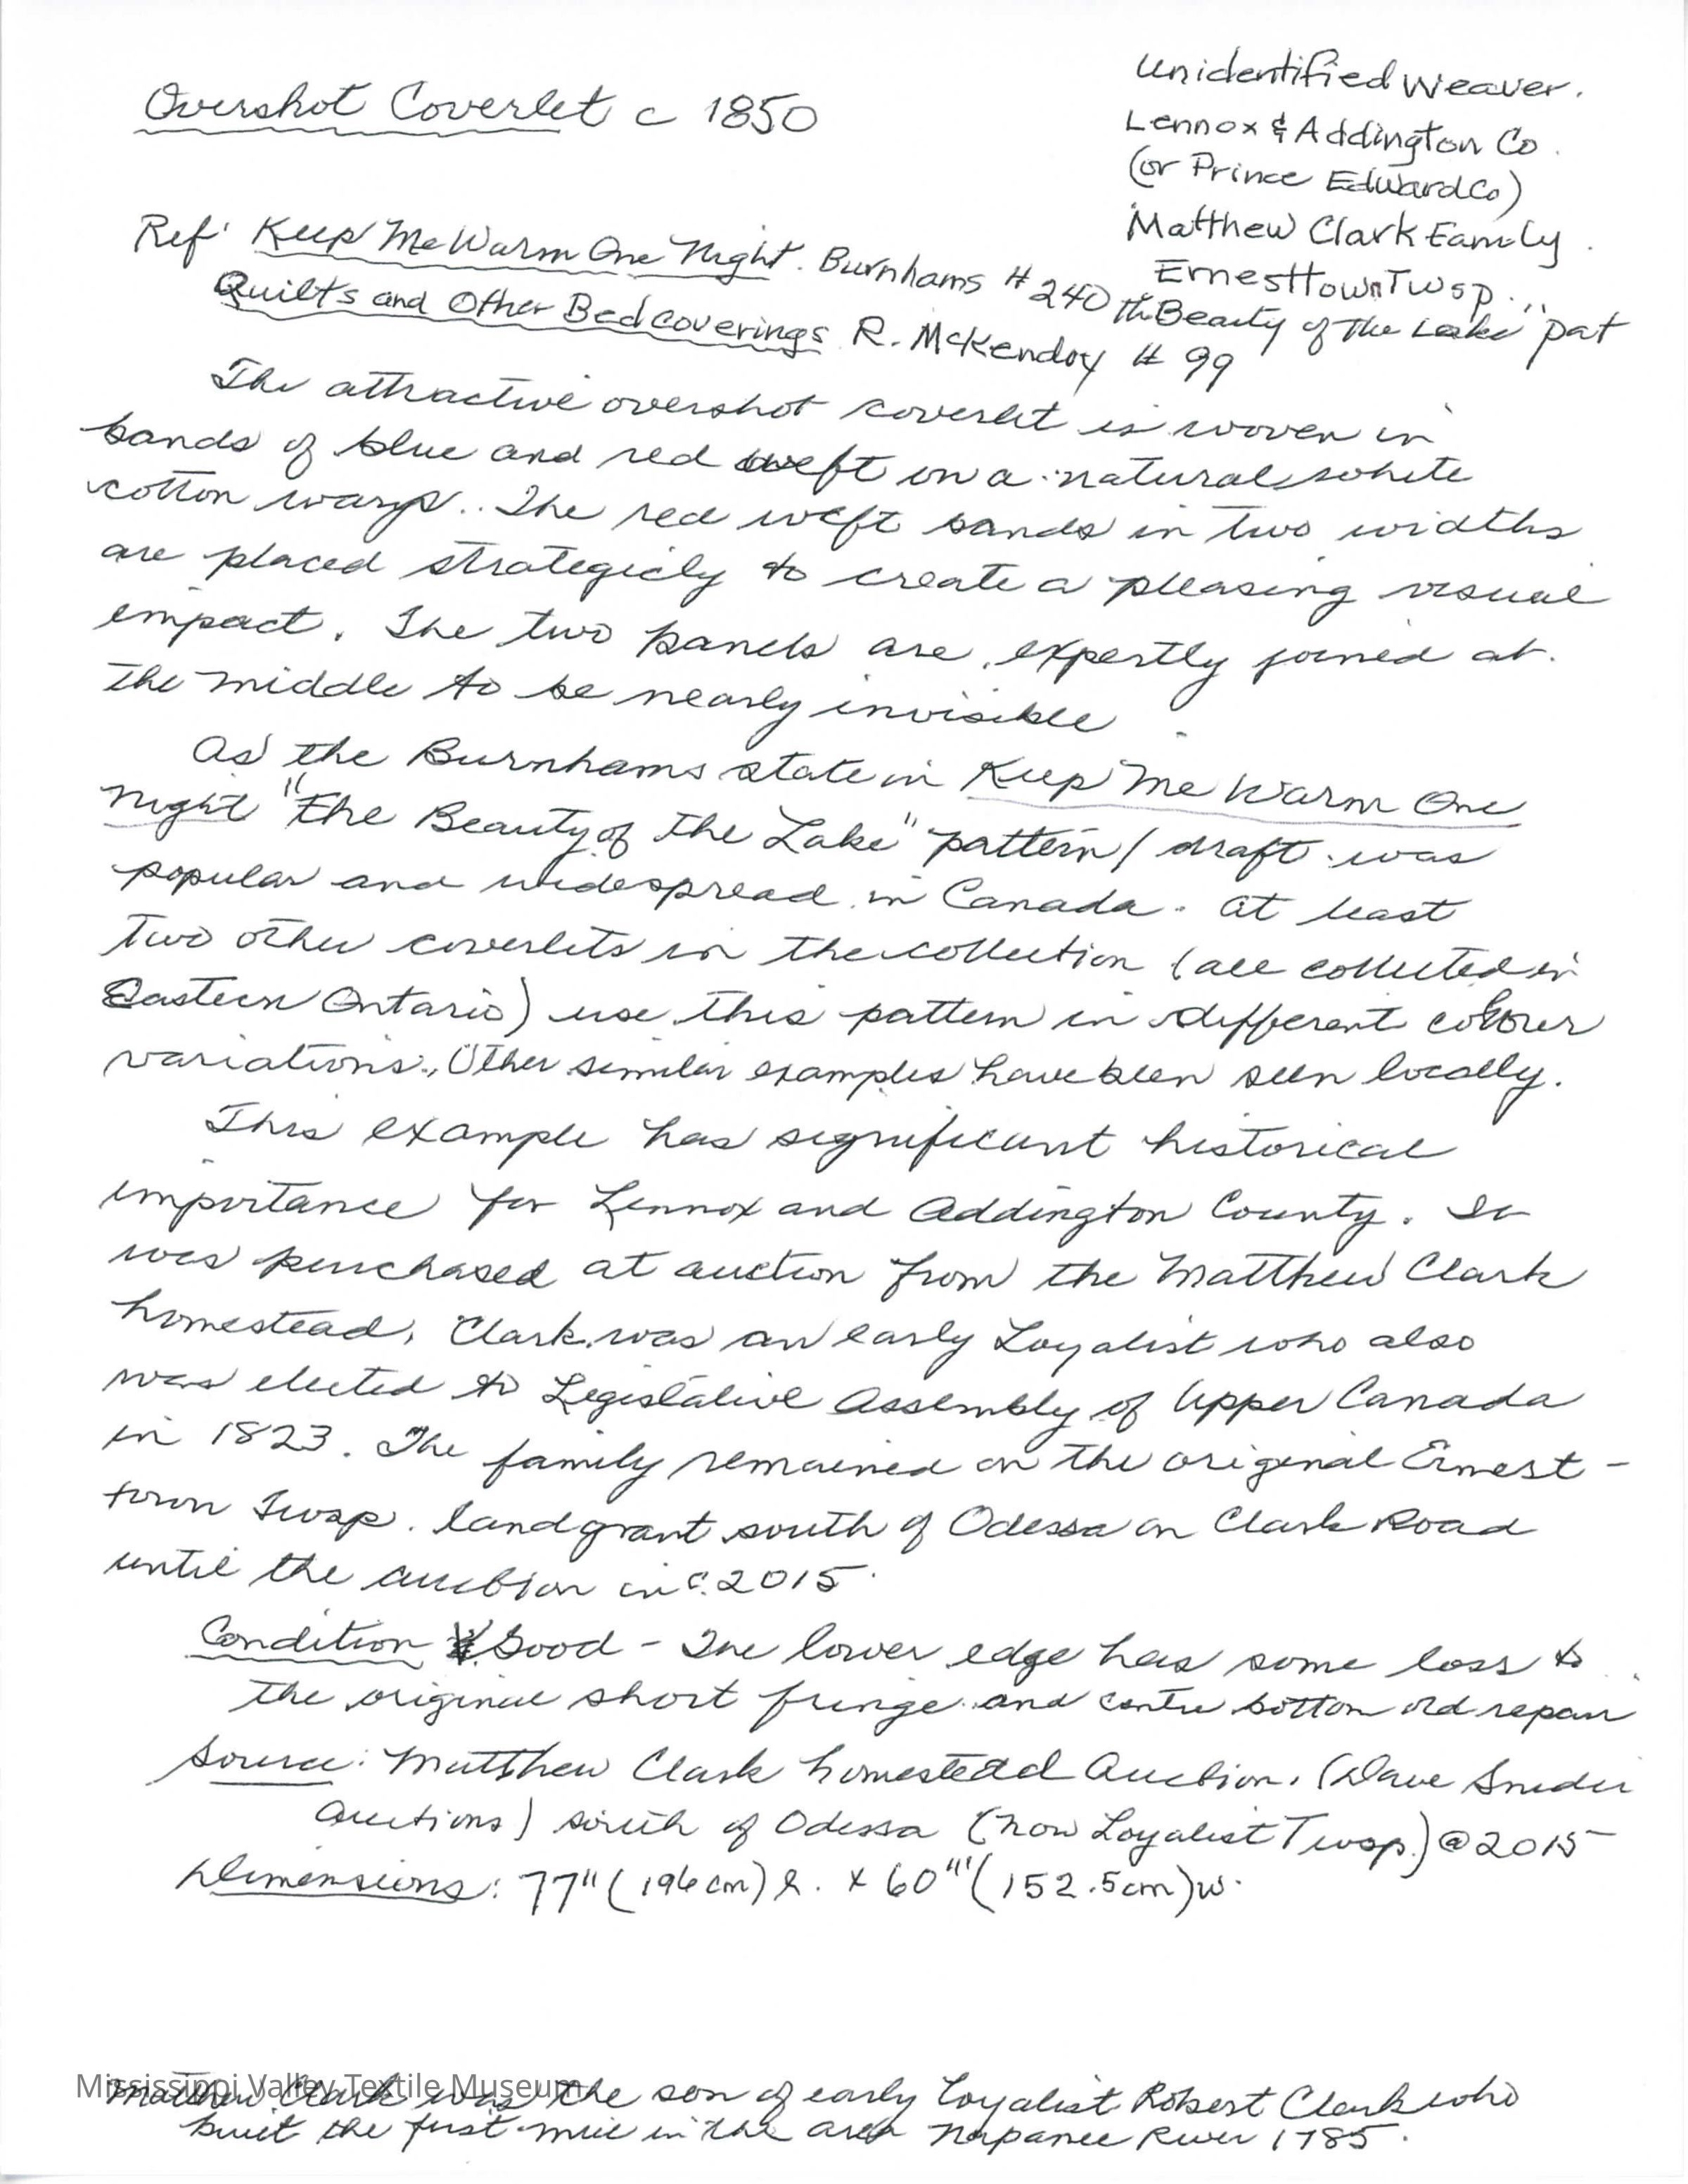 Overshot Coverlet c 1850
Unidentified Weaver.
Lennox & Addington Co.
(or Prince Edward Co)
Matthew Clark Family.
Ernesttown Twsp.
Ref: Keep Me Warm One Night. Burnhams # 240 "Beauty of the Lake" pat
Quilts and Other Bedcoverings R. McKendry # 99
The attractive overshot coverlet is woven in
bands of blue and red weft on a natural white
cotton warp. The red weft bands in two widths
are placed strategicly to create a pleasing visual
impact. The two panels are expertly joined at
the middle to be nearly invisible.
As the Burnhams state in Keep Me Warm One
Night "The Beauty of the Lake" pattern/draft was
popular and widespread in Canada. At least
two other coverlets in the collection (all collected in
Eastern Ontario) use this pattern in different colour
variations. Other similar examples have been seen locally.
This example has significant historical
importance for Lennox and Addington County. It
was purchased at auction from the Matthew Clark
homestead. Clark was an early Loyalist who also
was elected to Legislative Assembly of Upper Canada
in 1823. The family remained on the original Ernest-
town Twsp. land grant south of Odessa on Clark Road
until the auction in c. 2015.
Condition Good - The lower edge has some loss to
the original short fringe and centre bottom old repair
Source: Matthew Clark homestead Auction. (Dave Snider
Auctions) south of Odessa (now Loyalist Twsp.) @ 2015
Dimensions: 77" (196 cm) l. x 60" (152.5 cm) w.
Mississippi Valley Textile Museum
Matthew Clark was the son of early Loyalist Robert Clark who
built the first mill in the area Napanee River 1785.